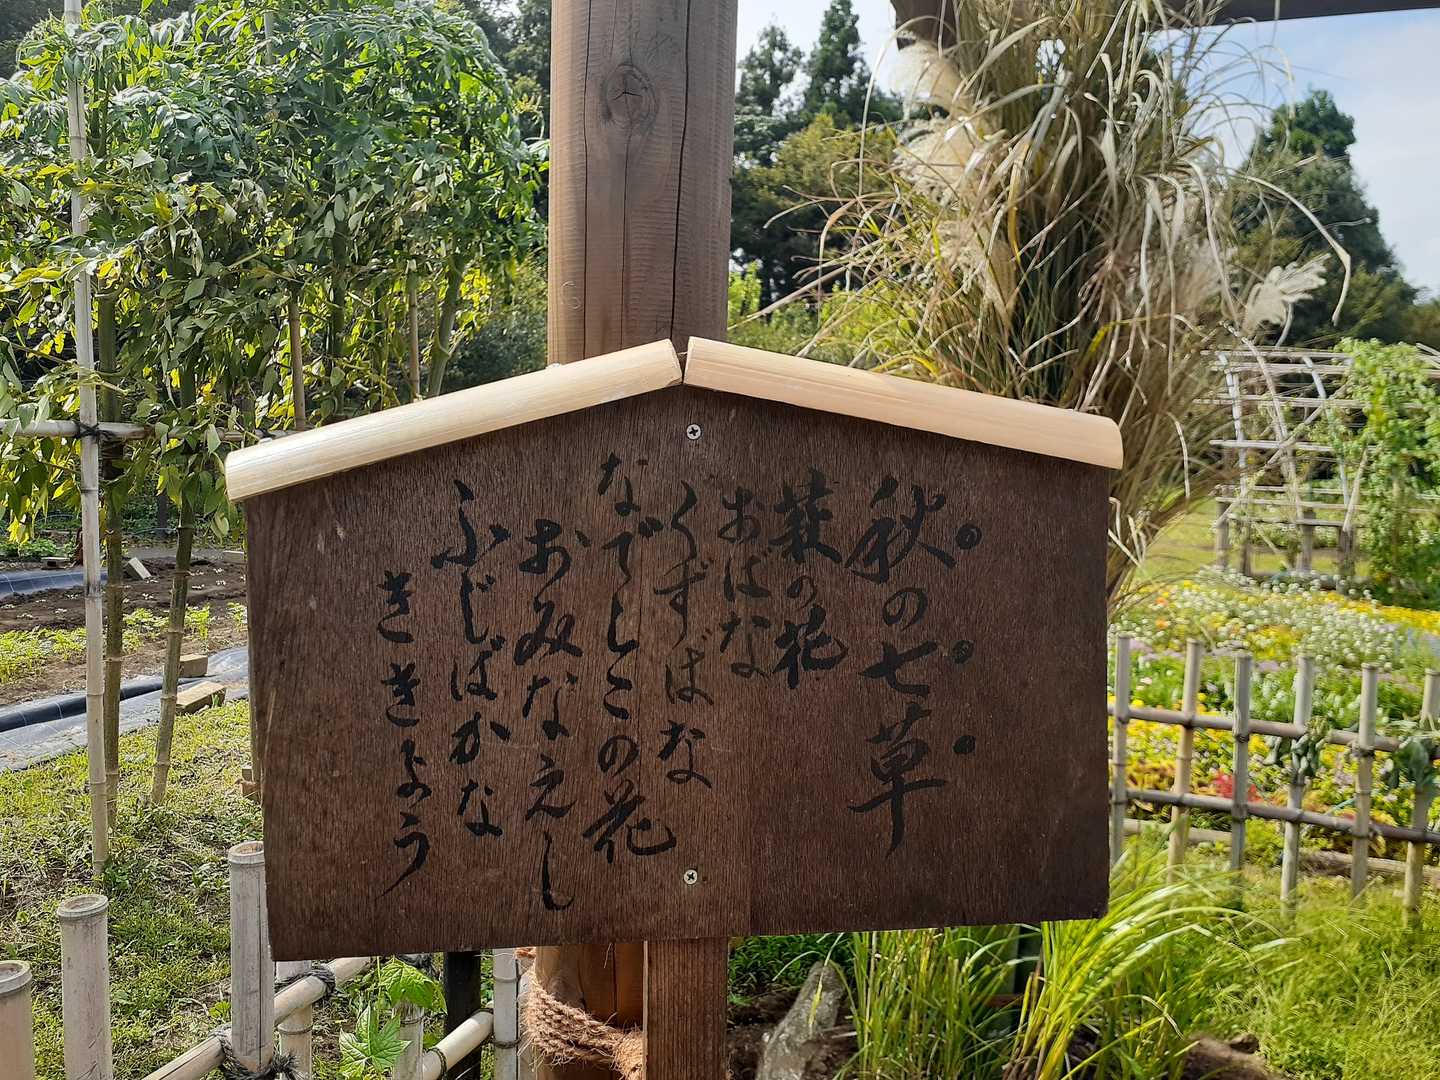 秋の七草
萩の花
おばな
くずばな
なでしこの花
おみなえし
ふじばかな
ききょう